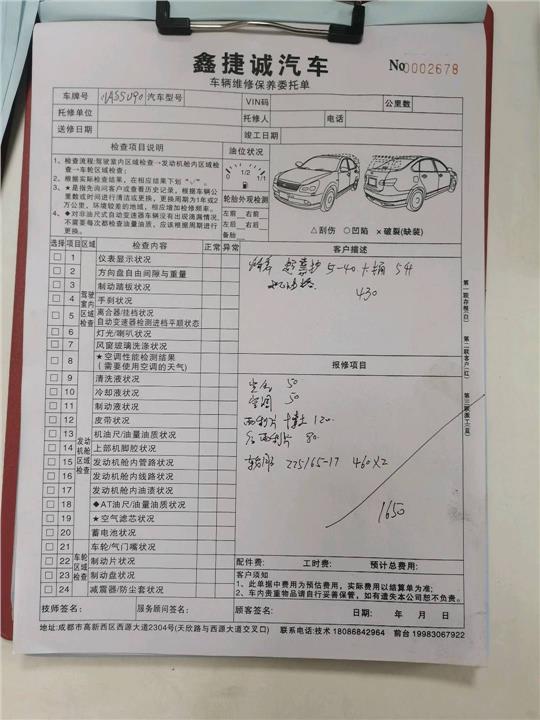 鑫捷诚汽车
No 0002678
车辆维修保养委托单
车牌号 汽车型号 VIN码 公里数
托修单位 托修人 电话
送修日期 竣工日期
检查项目说明
1、检查流程:驾驶室内区域检查→发动机舱内区域检查→车轮区域检查;
2、根据实际检查结果,在相应结果下划"√"。
3、★是指先询问客户或查看历史记录,根据车辆公里数或时间进行清洁或更换,更换周期为1年或2万公里,环境较差的地域,相应增加检修频率。
4、◆对非油尺式自动变速器车辆没有出现滴漏情况,不需要每次都检查油量油质,应该根据周期进行更换。
油位状况
0 1/2 1/1
轮胎外观检测
左前 右前
左后 右后
备胎
△刮伤 ○凹陷 ×破裂(缺装)
选择 项目 区域 检查内容 正常 异常
驾驶室内区域检查
1 仪表显示状况
2 方向盘自由间隙与重量
3 制动踏板状况
4 手刹状况
5 离合器/挂档状况
自动变速器检测进档平顺状态
6 灯光/喇叭状况
7 风窗玻璃洗涤状况
8 ★空调性能检测结果
(需要使用空调的天气)
发动机舱区域检查
9 清洗液状况
10 冷却液状况
11 制动液状况
12 皮带状况
13 机油尺/油量油质状况
14 上部机脚胶状况
15 发动机舱内管路状况
16 发动机舱内线路状况
17 发动机舱内油渍状况
18 ◆AT油尺/油量油质状况
19 ★空气滤芯状况
20 蓄电池状况
车轮区域检查
21 车轮/气门嘴状况
22 制动片状况
23 制动盘状况
24 减震器/防尘套状况
客户描述
5-40
430
报修项目
50
空调 50
120
80
轮胎 225/65-17 460×2
1650
配件费: 工时费: 预计总费用:
客户须知
1、此单据中费用为预估费用,实际费用以结算单为准;
2、车内贵重物品请自行妥善保管,如有遗失本公司恕不负责。
技师签名: 服务顾问签名: 顾客签名: 日期: 年 月 日
地址:成都市高新西区西源大道2304号(天欣路与西源大道交叉口) 联系电话:技术 18086842964 前台 19983067922
第一联存根(白) 第二联客户(红) 第三联派工(蓝)